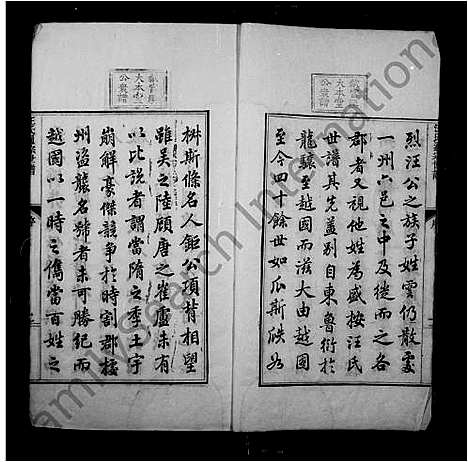 烈汪公之族子姓雲仍散處
一州六邑之中及從而之各
郡者又視他姓為盛按汪氏
世譜其先蓋別自東魯衍於
龍驤至越國而滋大由越國
至今四十餘世如瓜斯瓞如
樹斯條名人鉅公項背相望
雖吳之陸顧唐之崔盧未有
以比說者謂當隋之季土宇
崩解豪傑競爭於時割郡據
州盜竊名號者未可勝紀而
越國以一時之儁當百姓之
大本堂
公貴譜
大本堂
公貴譜
FamilySearch International